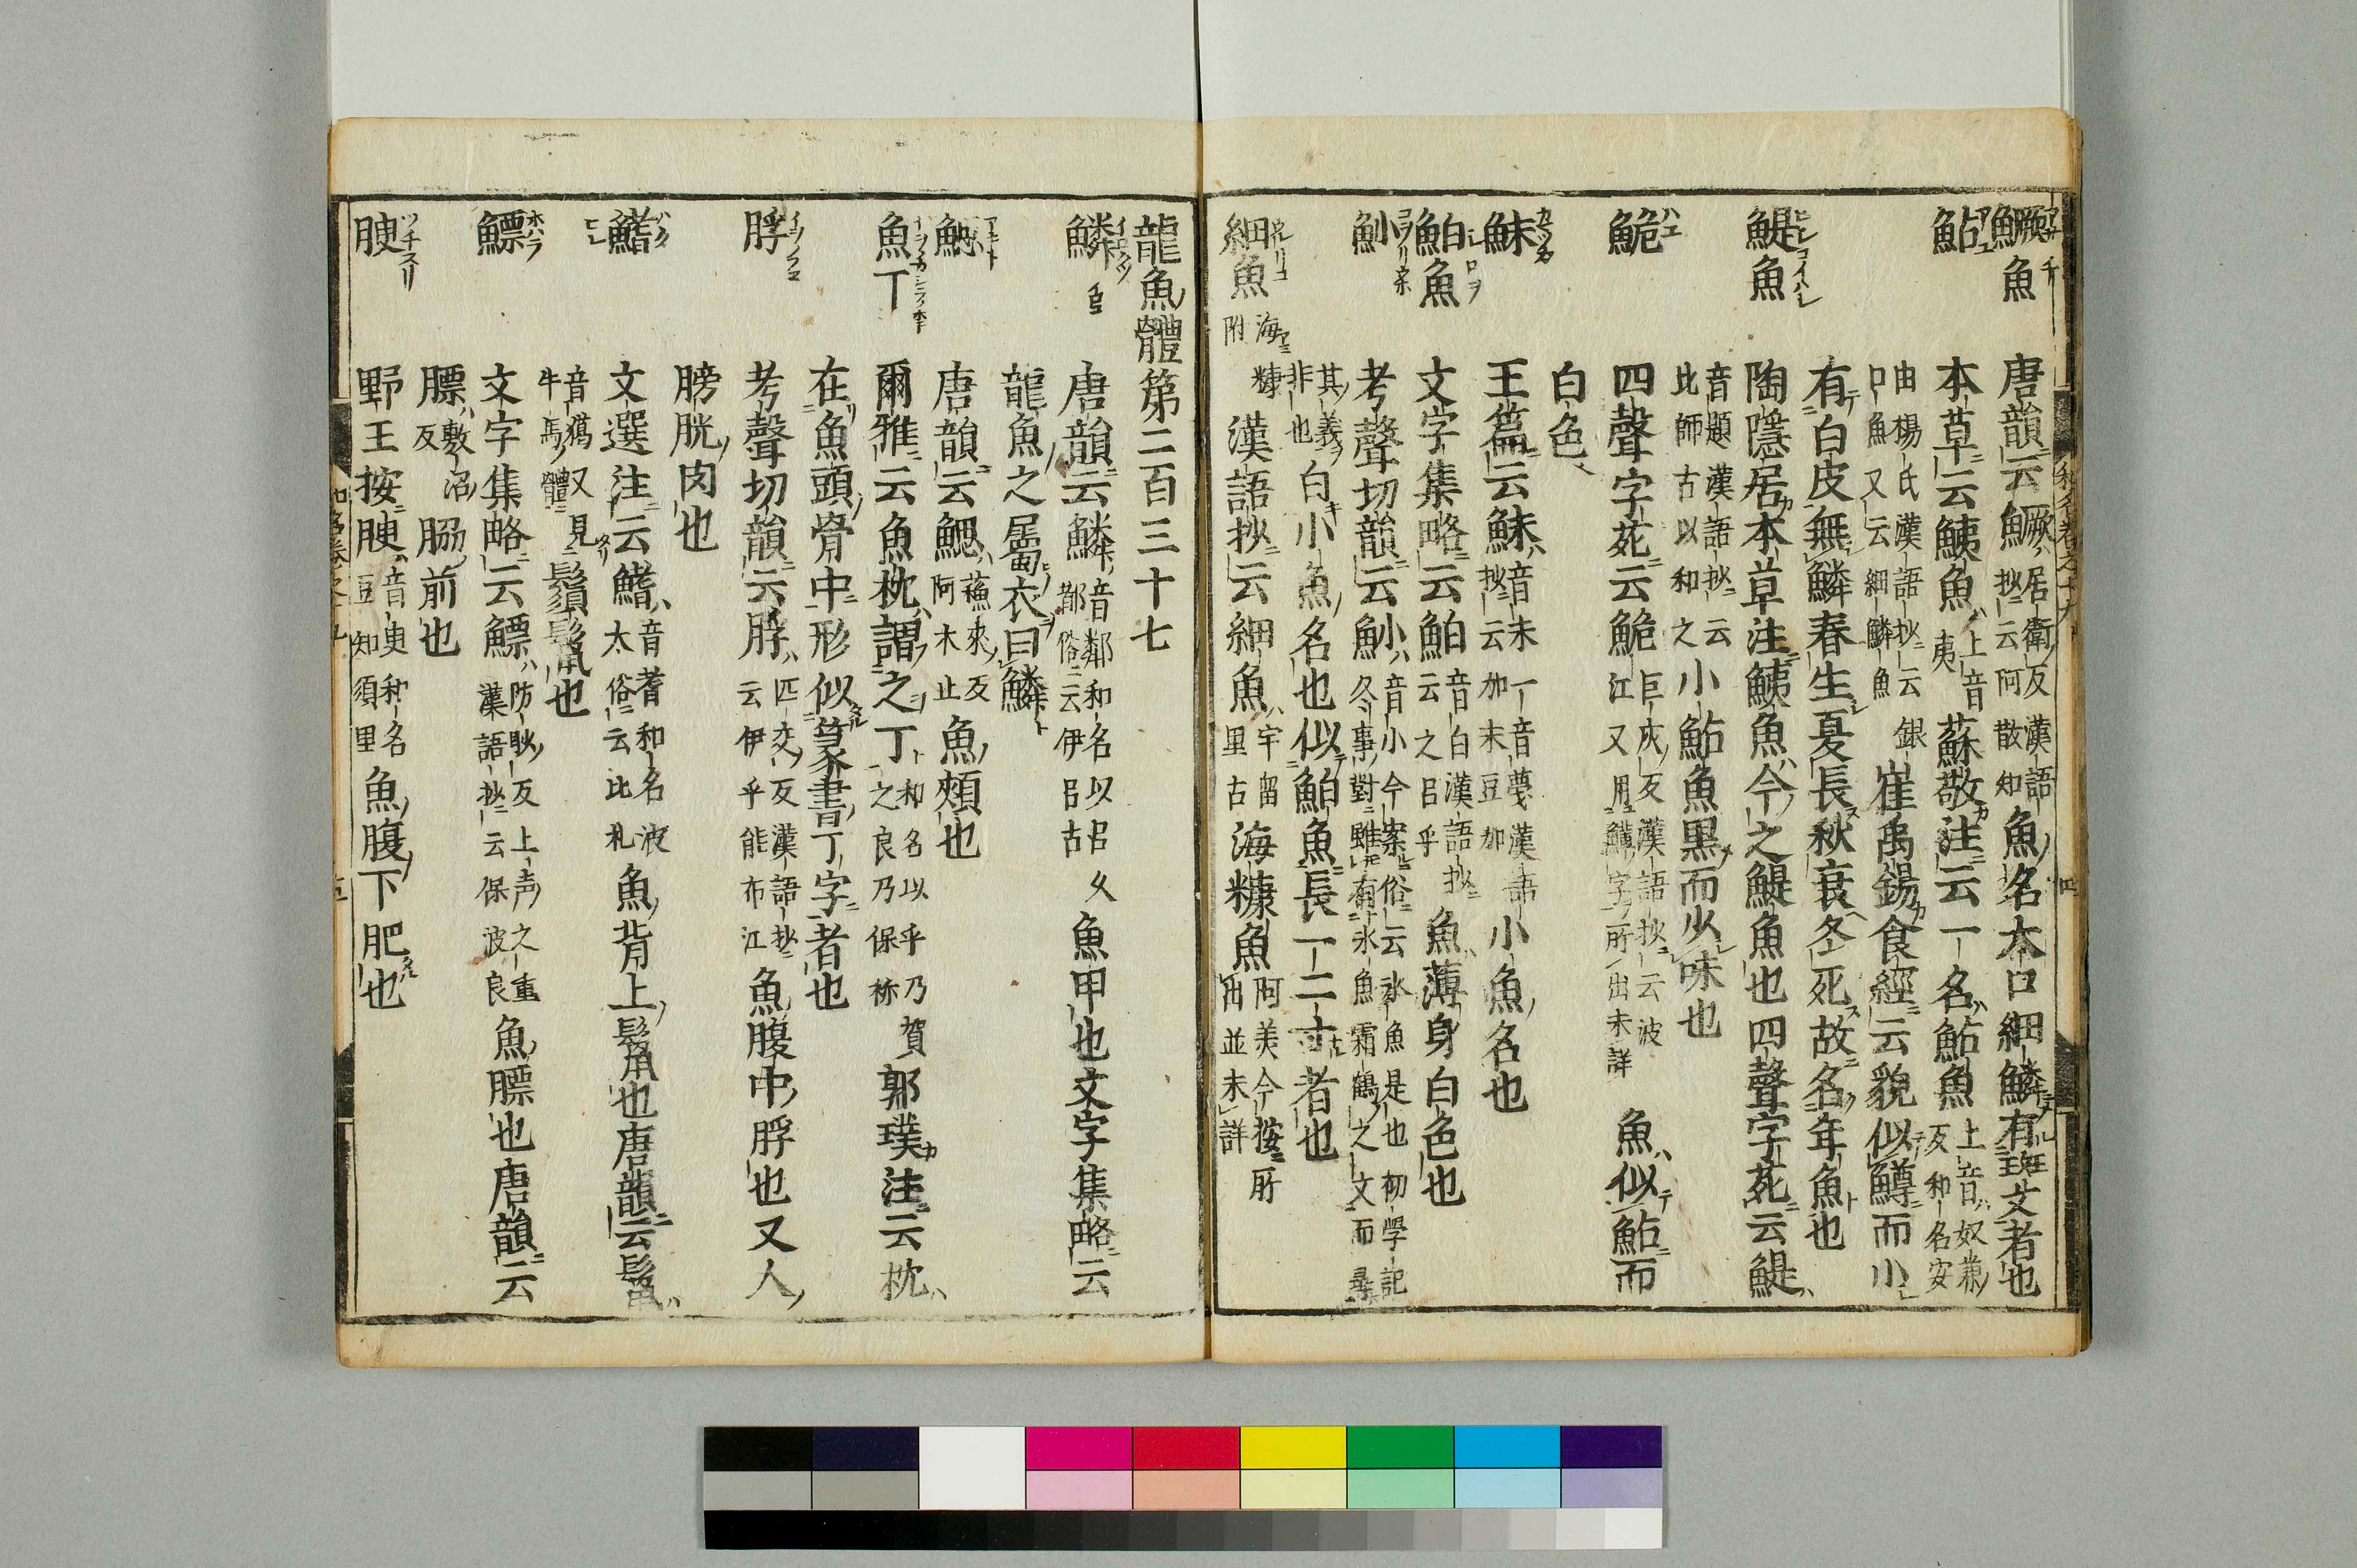 鱖魚 唐韻云鱖居衛反漢語抄云阿散知魚名大口細鱗有斑文者也
鮎 本草云鮧魚上音夷蘇敬注云一名鮎魚上音奴兼反和名安
由楊氏漢語抄云銀口魚又云細鱗魚崔禹錫食經云貌似鱒而小
有白皮無鱗春生夏長秋衰冬死故名年魚也
鯷魚 陶隱居本草注鮧魚今之鯷魚也四聲字苑云鯷
音題漢語抄云比師古以和之小鮎魚黒而少味也
鮠 四聲字苑云鮠巨灰反漢語抄云波江又用魚字所出未詳魚似鮎而
白色
䱅 王篇云䱅音末一音夢漢語抄云加末豆加小魚名也
鮊魚 文字集略云鮊音白漢語抄云之呂乎魚薄身白色也
魦 考聲切韻云魦音小今案俗云氷魚是也初學記冬事對雖有氷魚霜鶴之文而尋
其義非也白小魚名也似鮊魚長一二寸者也
細魚 海糠附 漢語抄云細魚宇留里古海糠魚阿美今按所出並未詳
龍魚體第二百三十七
鱗 唐韻云鱗音鄰和名以呂久都俗云伊呂古魚甲也文字集略云
龍魚之屬衣曰鱗
鰓 唐韻云鰓蘓來反阿木止魚頰也
魚丁 爾雅云魚枕謂之丁和名以乎乃賀之良乃保祢郭璞注云枕
在魚頭骨中形似篆書丁字者也
脬 考聲切韻云脬匹交反漢語抄云伊乎能布江魚腹中脬也又人
膀胱肉也
鰭 文選注云鰭音耆和名波太俗云比礼魚背上鬣也唐韻云鬣
音獦又見牛馬體鬚鬣也
鰾 文字集略云鰾防眇反上声之重漢語抄云保波良魚膘也唐韻云
膘敷沼反脇前也
腴 野王按腴音臾和名豆知須里魚腹下肥也